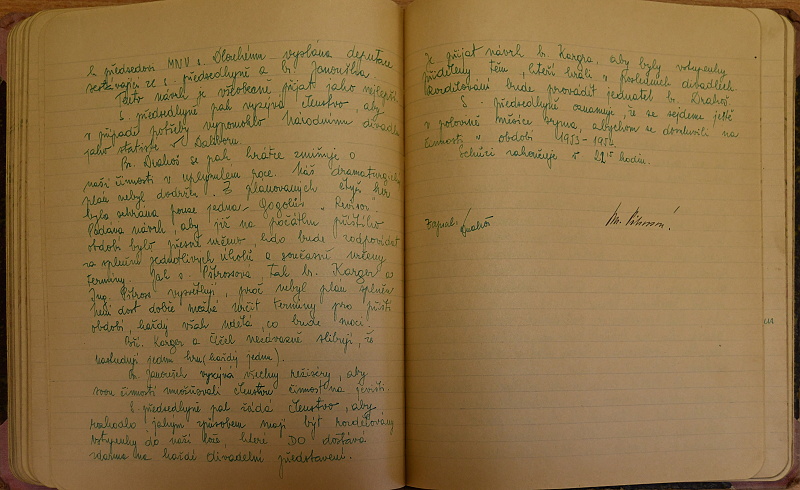 k předsedovi MNV s. Dlouhému vyslána deputace
sestávající ze s. předsedkyně a br. Janouška.
Tento návrh je všeobecně přijat jako nejlepší.
S. předsedkyně pak vyzývá členstvo, aby
v případě potřeby vypomohlo Národnímu divadlu
jako statisté v
Br. Drahoš se pak krátce zmiňuje o
naší činnosti v uplynulém roce. Náš dramaturgický
plán nebyl dodržen. Z plánovaných čtyř her
byla sehrána pouze jedna - Gogolův "Revisor".
Podává návrh, aby již na počátku příštího
období bylo přesně určeno, kdo bude zodpovídat
za splnění jednotlivých úkolů a současně určeny
termíny. Jak s. Pštrossová, tak br. Karger a
Ing. Pštross vysvětlují, proč nebyl plán splněn
není dost dobře možné určit termíny pro příští
období, každý však udělá, co bude moci.
Bři. Karger a Čičel nezávazně slibují, že
nastudují jednu hru (každý jednu).
Br. Janoušek vyzývá všechny režiséry, aby
svou činností umožňovali členstvu činnost na jevišti.
S. předsedkyně pak žádá členstvo, aby
rozhodlo, jakým způsobem mají být rozdělovány
vstupenky do naší lóže, které DO dostává
zdarma na každé divadelní představení.
Je přijat návrh br. Kargra, aby byly vstupenky
přiděleny těm, kteří hráli v posledních divadlech.
Rozdělování bude provádět jednatel br. Drahoš.
S. předsedkyně oznamuje, že se sejdeme ještě
v polovině měsíce srpna, abychom se domluvili na
činnosti v období 1953 - 1954.
Schůzi zakončuje v 22 15 hodin.
Zapsal: Drahoš